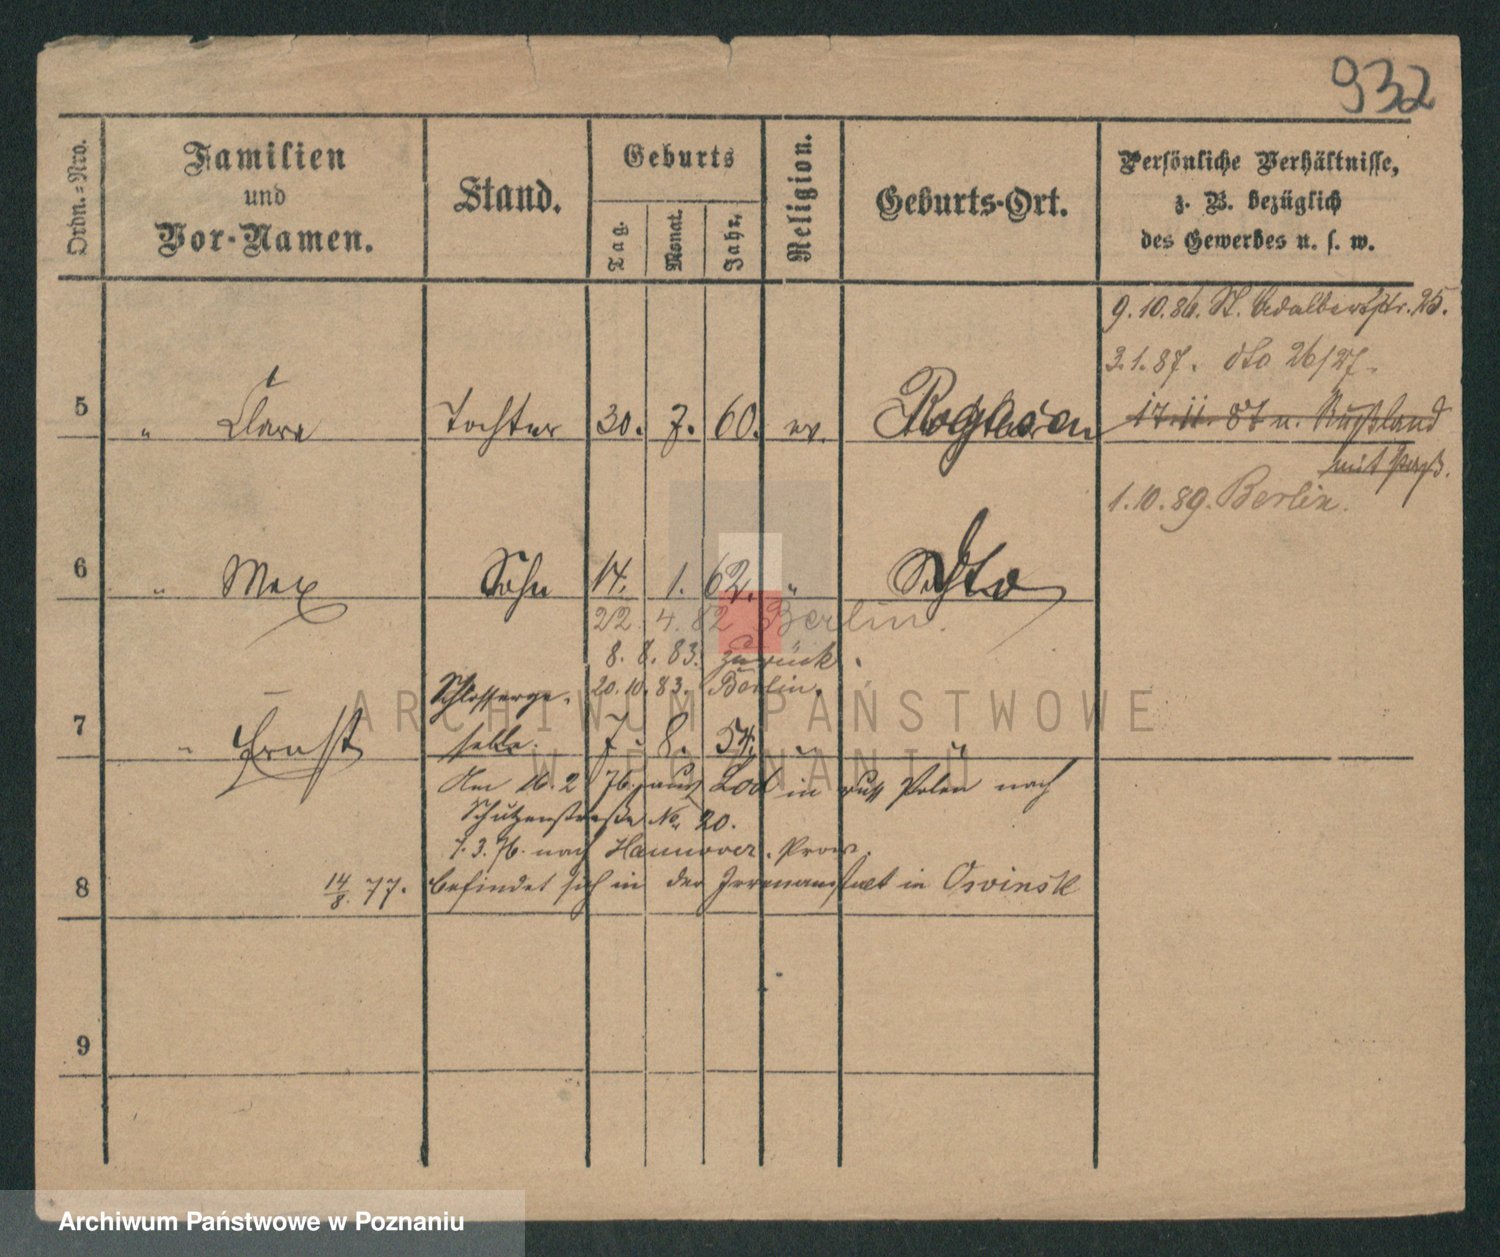 932
Ordn.=Nro.
Familien
und
Vor-Namen.
Stand.
Geburts
Tag.
Monat.
Jahr.
Religion.
Geburts-Ort.
Persönliche Verhältnisse,
z. B. bezüglich
des Gewerbes u. s. w.
9.10.86. St. Adalbertstr. 25.
3.1.87. dto 26/27.
5 " Clara Tochter 30. 7. 60. ev. Rogasen
17.11.87 n. Rußland
mit
1.10.89. Berlin.
6 " Max Sohn 14. 1. 62. " dto
22. 4. 82 Berlin.
8. 8. 83. zurück.
Schlosserge- 20.10.83. Berlin.
7 " Ernst selle. 7. 8. 54. " "
Am 16.2 76. aus Lod in russ Polen nach
Schützenstraße No 20.
1.3.76. nach Hannover. Prov.
8 14/8. 77. befindet sich in der Irrenanstalt in Owinsk
9
ARCHIWUM PAŃSTWOWE
W POZNANIU
Archiwum Państwowe w Poznaniu